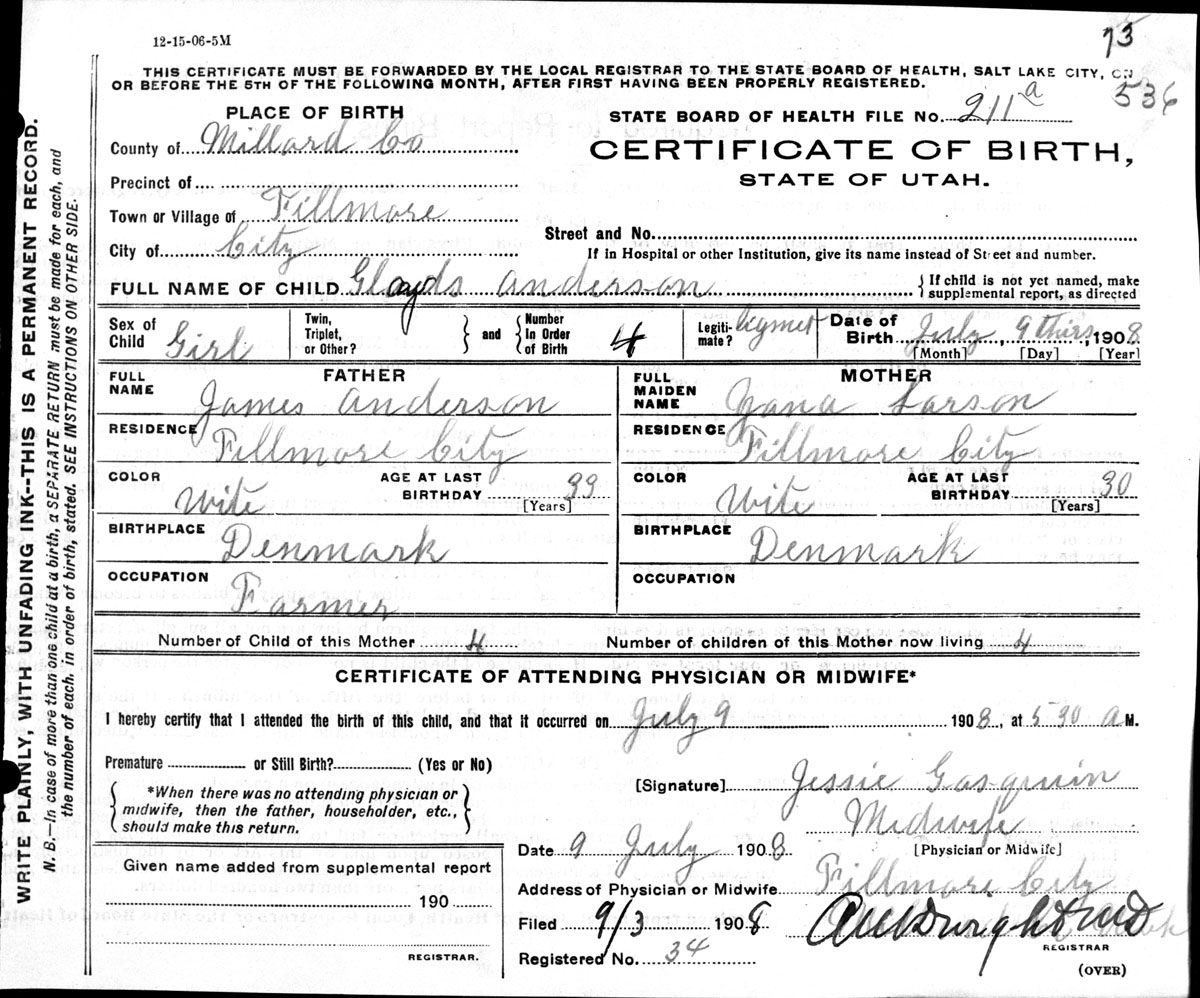 12-15-06-5M
73
THIS CERTIFICATE MUST BE FORWARDED BY THE LOCAL REGISTRAR TO THE STATE BOARD OF HEALTH, SALT LAKE CITY, ON
OR BEFORE THE 5TH OF THE FOLLOWING MONTH, AFTER FIRST HAVING BEEN PROPERLY REGISTERED.
536
PLACE OF BIRTH
STATE BOARD OF HEALTH FILE No. 211 a
County of Millard Co
CERTIFICATE OF BIRTH,
STATE OF UTAH.
Precinct of
Town or Village of Fillmore
Street and No.
City of City
If in Hospital or other Institution, give its name instead of Street and number.
FULL NAME OF CHILD Anderson
If child is not yet named, make
supplemental report, as directed
Sex of Child Girl
Twin, Triplet, or Other?
and
Number in Order of Birth 4
Legitimate?
Date of Birth July 9 1908
[Month] [Day] [Year]
FATHER
FULL NAME James Anderson
RESIDENCE Fillmore City
COLOR Wite
AGE AT LAST BIRTHDAY 33
[Years]
BIRTHPLACE Denmark
OCCUPATION Farmer
MOTHER
FULL MAIDEN NAME Larson
RESIDENCE Fillmore City
COLOR Wite
AGE AT LAST BIRTHDAY 30
[Years]
BIRTHPLACE Denmark
OCCUPATION
Number of Child of this Mother 4
Number of children of this Mother now living 4
CERTIFICATE OF ATTENDING PHYSICIAN OR MIDWIFE*
I hereby certify that I attended the birth of this child, and that it occurred on July 9 1908, at 5 30 A M.
Premature or Still Birth? (Yes or No)
[Signature] Jessie
*When there was no attending physician or
midwife, then the father, householder, etc.,
should make this return.
Midwife
[Physician or Midwife]
Date 9 July 1908
Given name added from supplemental report
190
REGISTRAR.
Address of Physician or Midwife Fillmore City
Filed 9/3 1908
REGISTRAR
Registered No. 34
(OVER)
WRITE PLAINLY, WITH UNFADING INK--THIS IS A PERMANENT RECORD.
N. B.—In case of more than one child at a birth, a SEPARATE RETURN must be made for each, and
the number of each, in order of birth, stated. SEE INSTRUCTIONS ON OTHER SIDE.